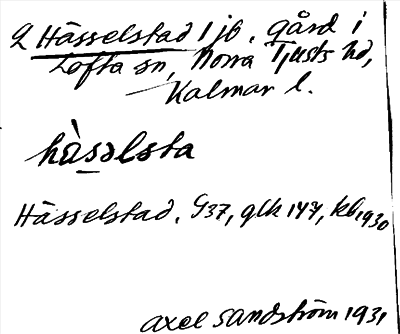 2 Hässelstad 1 jb. gård i
Lofta sn, Norra Tjusts hd,
Kalmar l.
hὰsəlsta
Hässelstad. G37, glk 147, kb 1930
Axel Sandström 1931